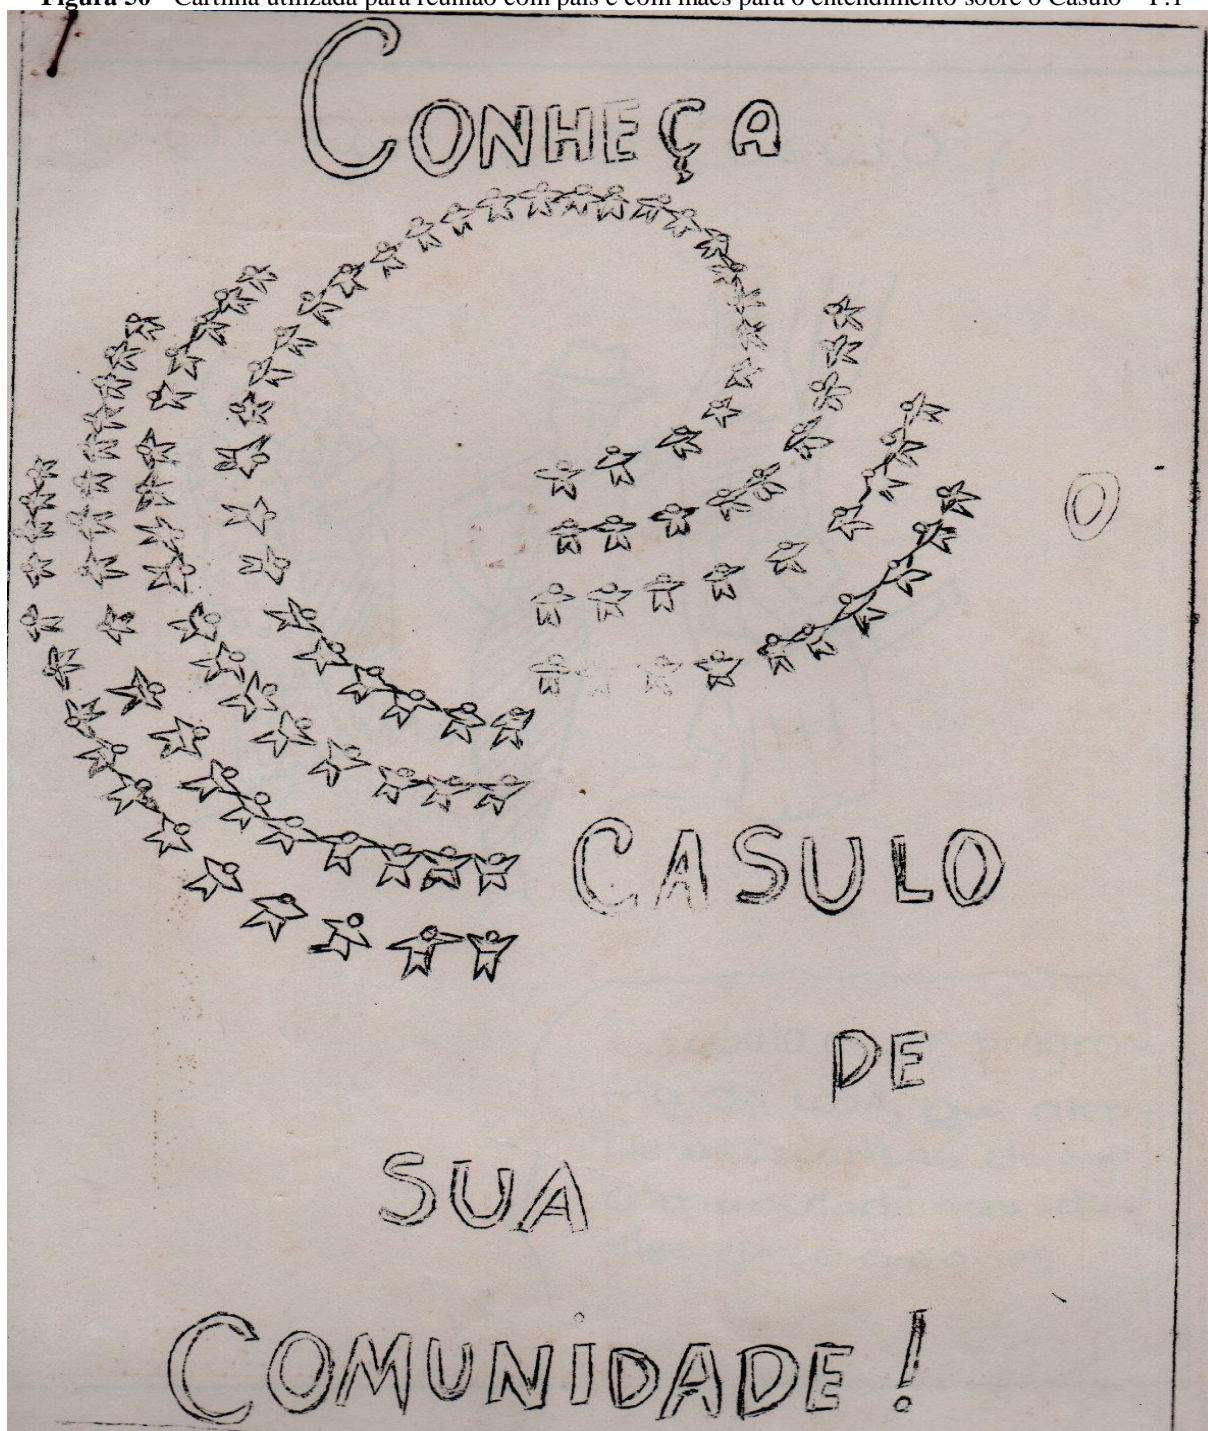 Figura 50 - Cartilha utilizada para reunião com pais e com mães para o entendimento sobre o Casulo - P.1
CONHEÇA
O
CASULO
DE
SUA
COMUNIDADE!